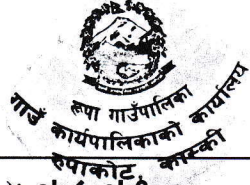 रूपा गाउँपालिका
गाउँ कार्यपालिकाको कार्यालय
रुपाकोट कास्की